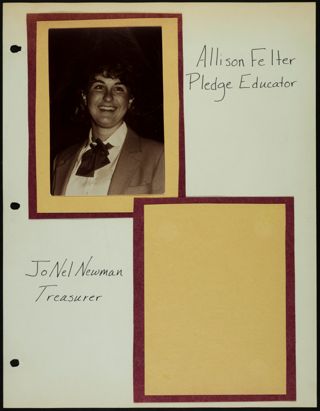 Allison Felter
Pledge Educator
JoNel Newman
Treasurer